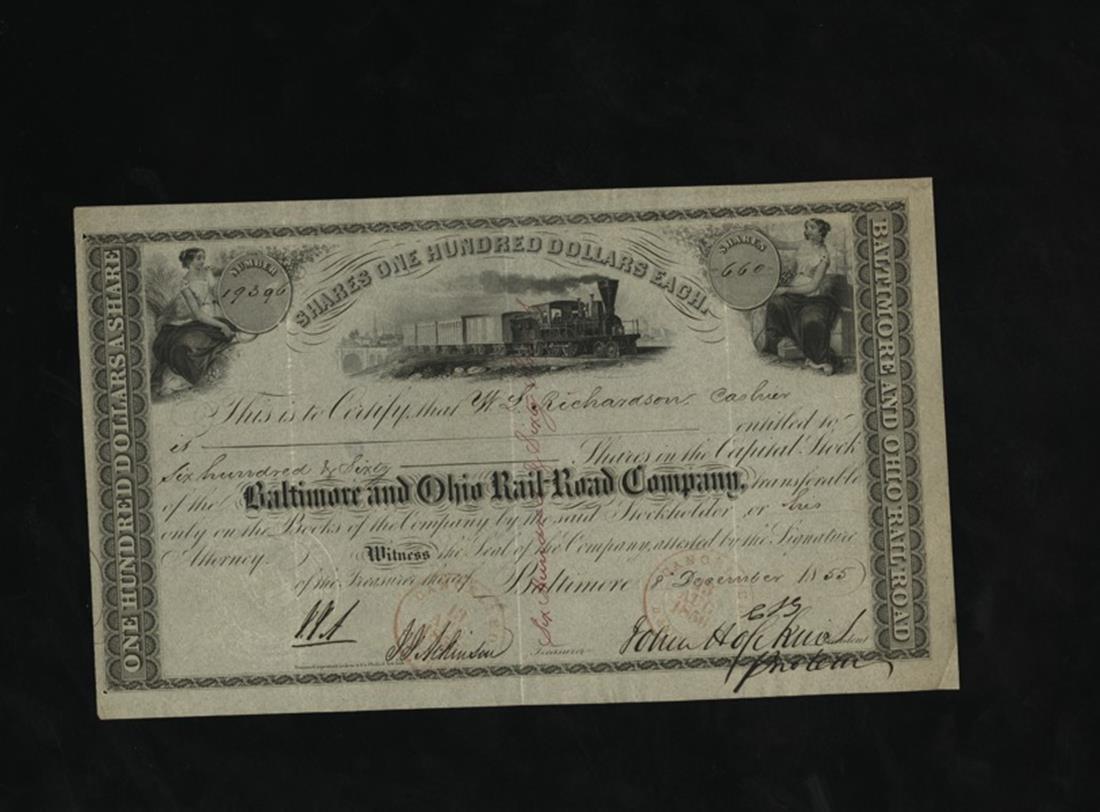 ONE HUNDRED DOLLARS A SHARE
NUMBER
19396
SHARES ONE HUNDRED DOLLARS EACH.
SHARES
660
BALTIMORE AND OHIO RAIL ROAD
This is to Certify, that W S. Richardson, Cashier
is entitled to
Six hundred & Sixty Shares in the Capital Stock
of the Baltimore and Ohio Rail-Road Company, transferable
only on the Books of the Company by the said Stockholder or his
Attorney. Witness the Seal of the Company, attested by the Signature
of the Treasurer thereof Baltimore 8 December 1855
Six Hundred & Sixty
CANCELLED
CANCELLED
J.J. Atkinson Treasurer
John Hopkins President
Protem